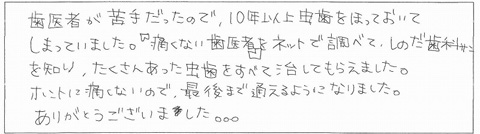 歯医者が苦手だったので、10年以上虫歯をほっておいて
しまっていました。"痛くない歯医者"をネットで調べて、しのだ歯科サン
を知り、たくさんあった虫歯をすべて治してもらえました。
ホントに痛くないので、最後まで通えるようになりました。
ありがとうございました。。。